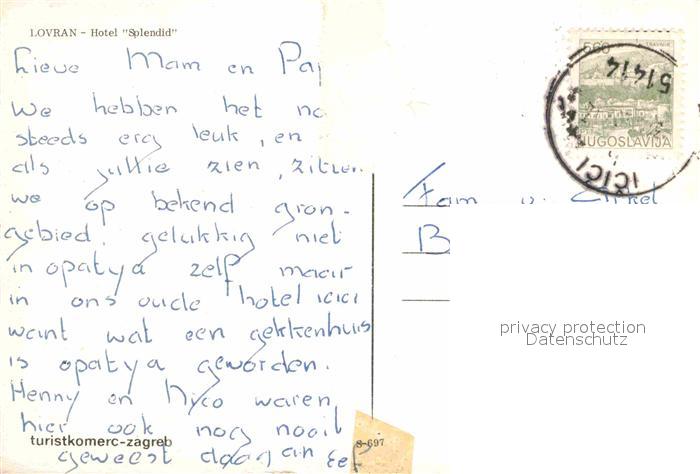 LOVRAN - Hotel "Splendid"
Lieve Mam en Pa
We hebben het no
steeds erg leuk, en
als jullie zien, zitten
we op bekend gron-
gebied. gelukkig niet
in opatya zelf maar
in ons oude hotel icici
want wat een gekkenhuis
is opatya geworden.
Henny en Nyco waren
hier ook nog nooit
turistkomerc-zagreb
geweest daar
S-697
5.60 TRAVNIK
JUGOSLAVIJA
51414
IČIĆI
Fam v.
B
privacy protection
Datenschutz